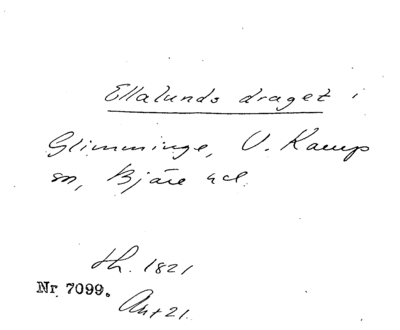 Ellalunds draget i
Glimminge, V. Karup
sn, Bjäre hd.
th. 1821
Nr 7099.
Ant 21.